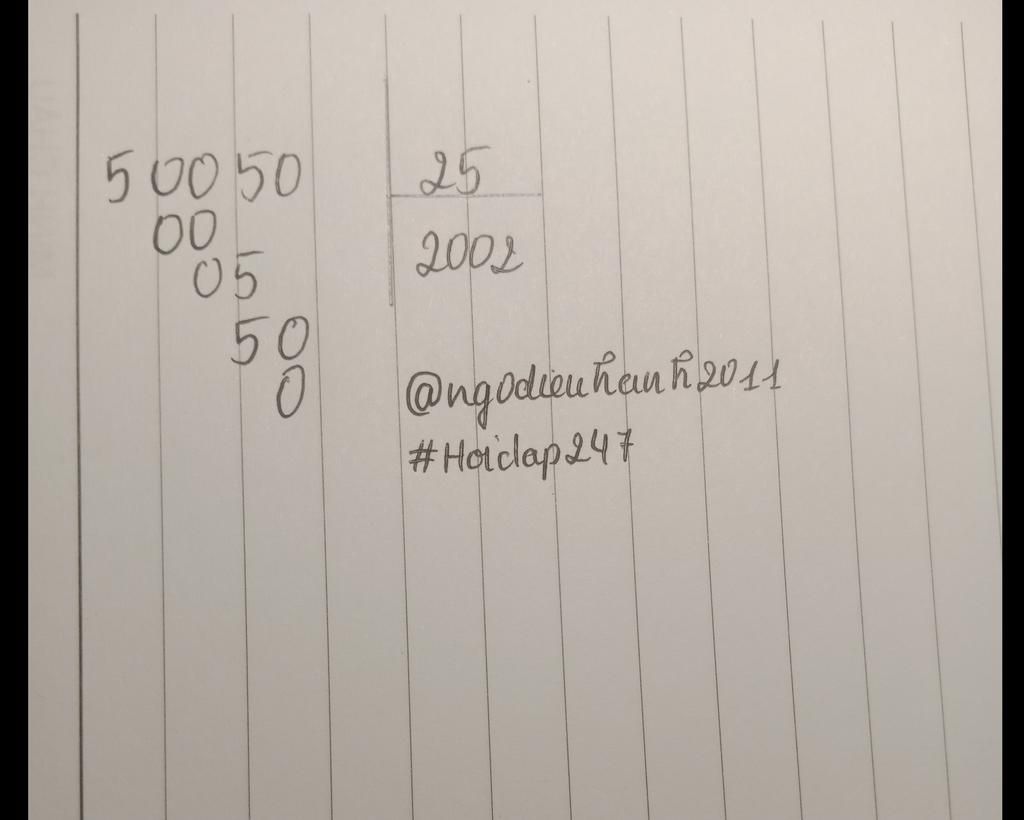 50050 25
00 2002
05
50
0 @ngodieuhanh2011
#Hoidap247